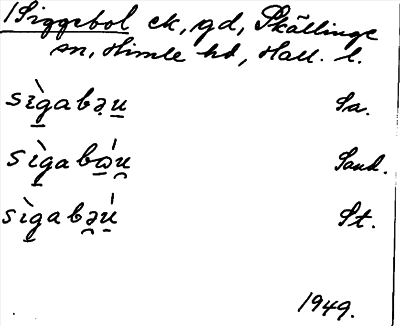 Siggebol ck, gd, Skällinge
sn, Himle hd, Hall. l.
sìgabə̣u Sa.
sìgabώ̯u Sand.
sìgabə̯ú̯ St.
1949.